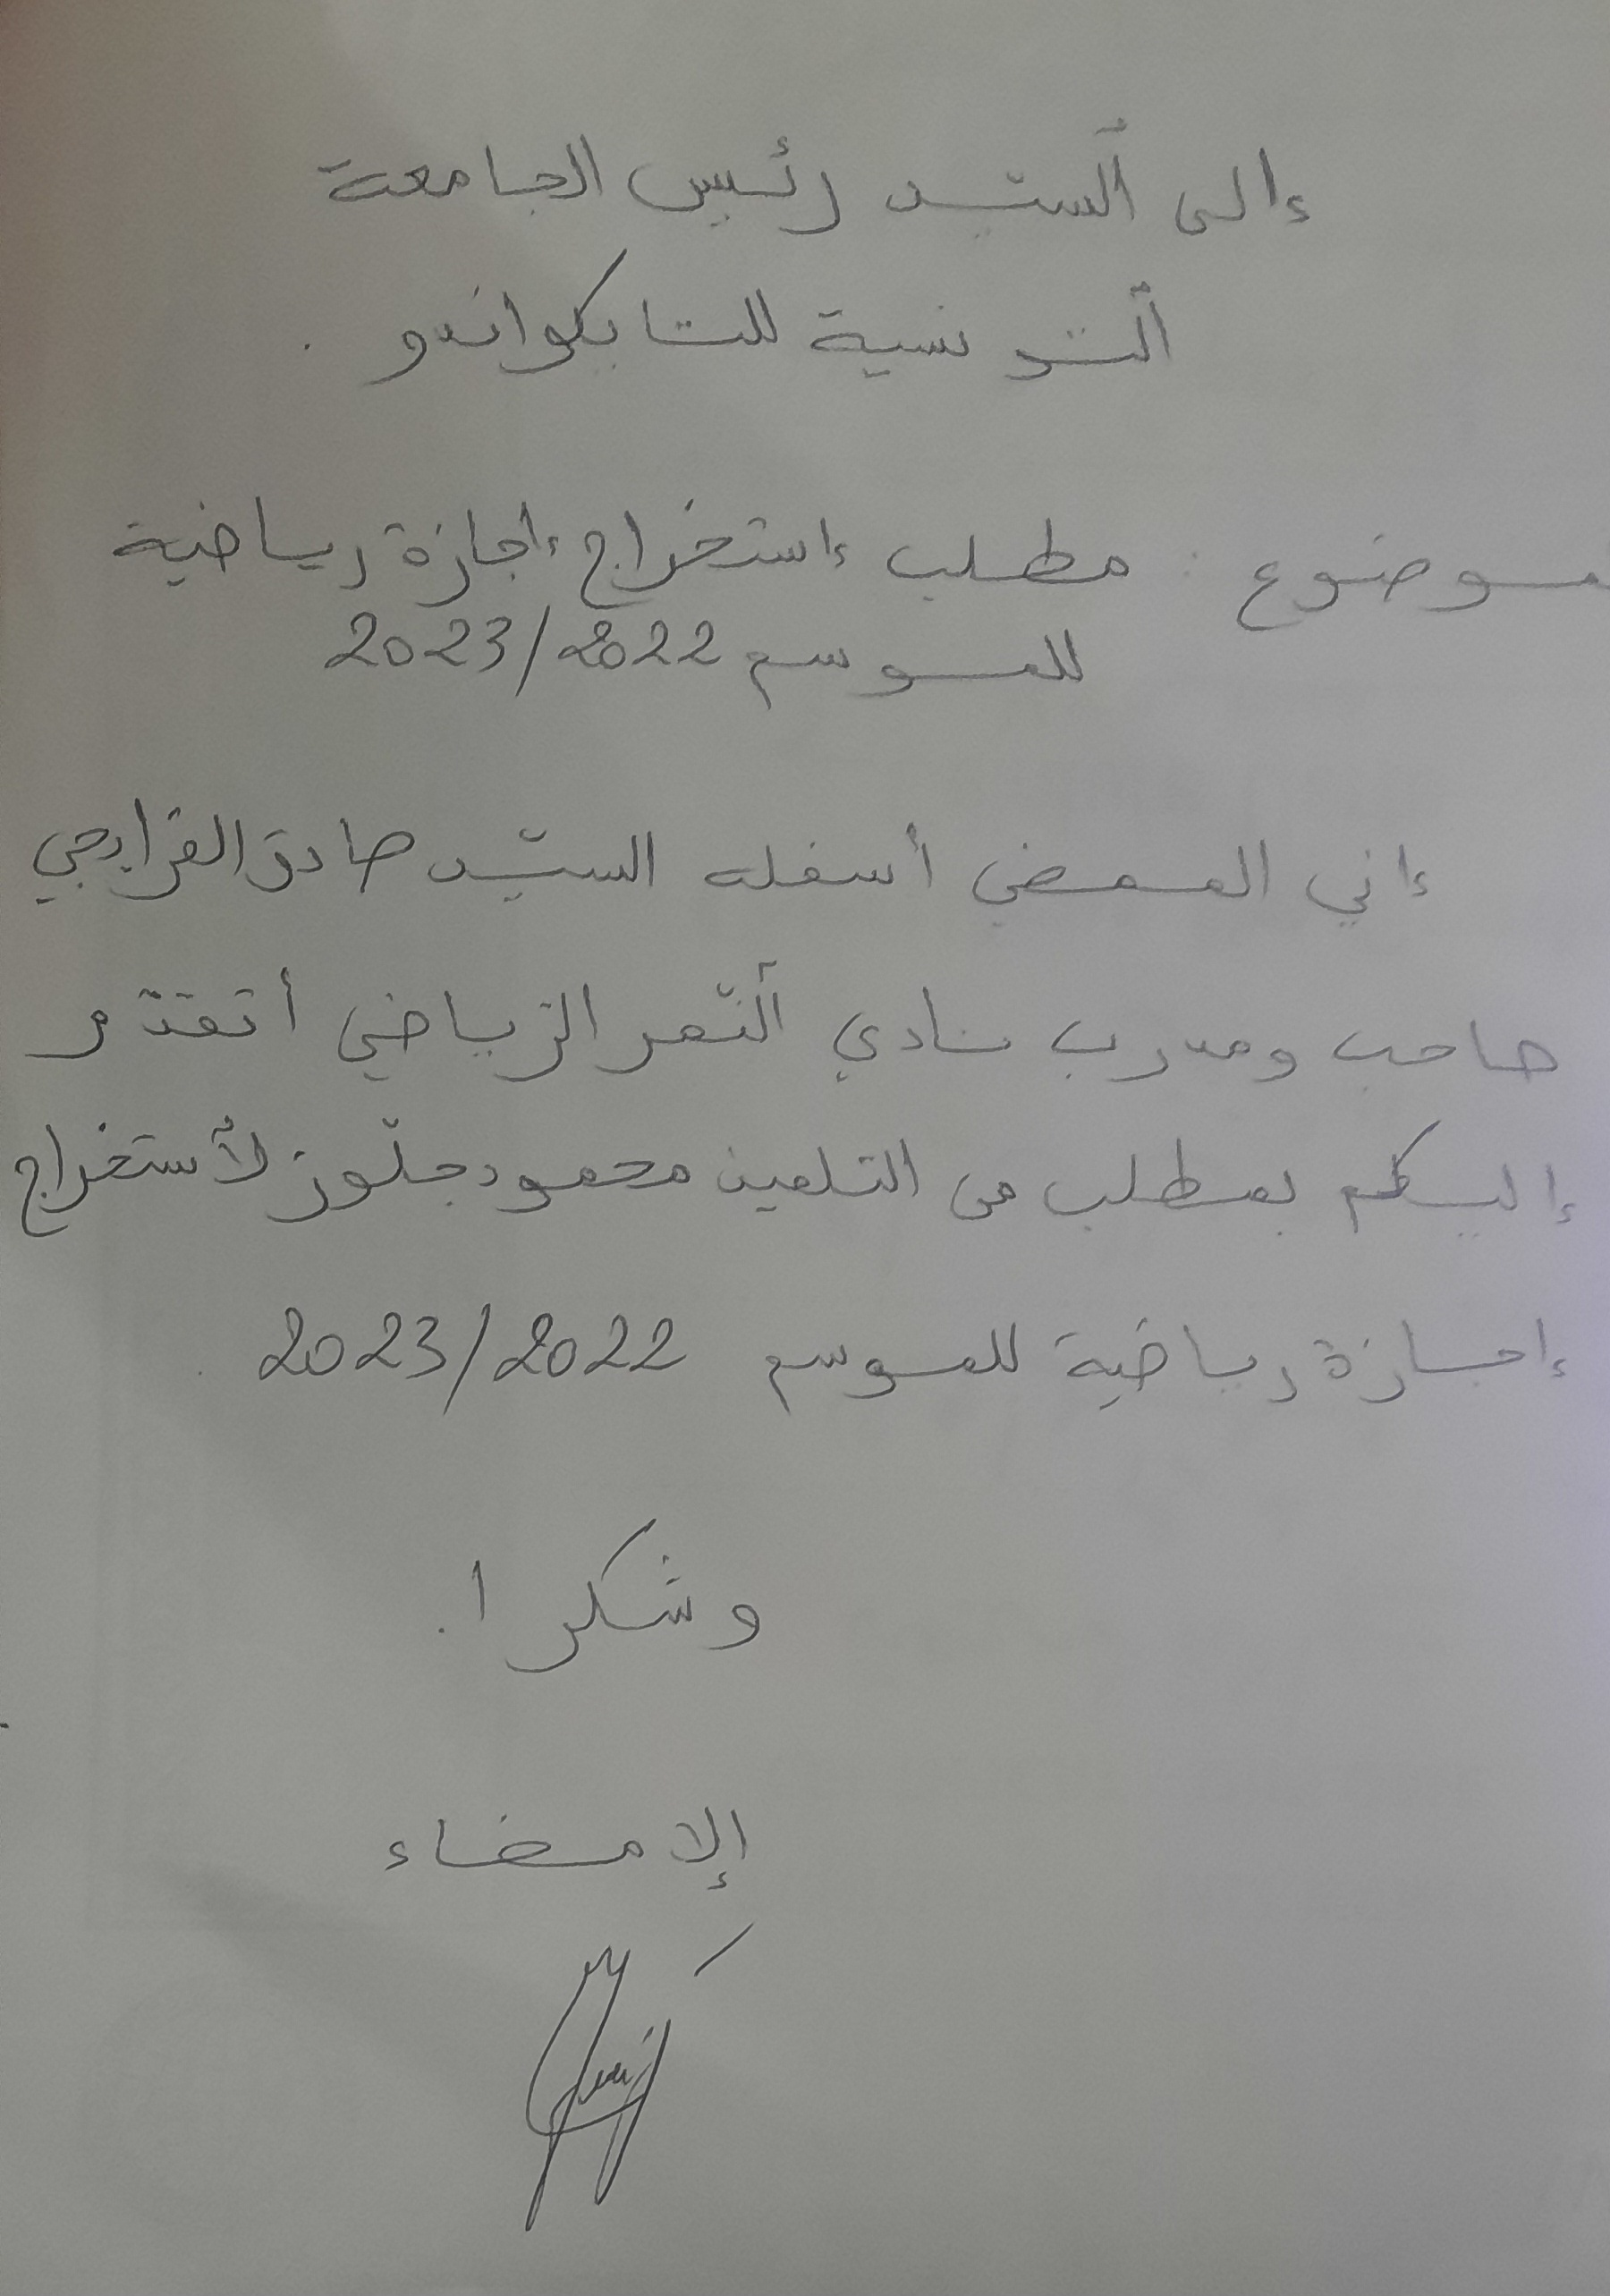 إلى السّيد رئيس الجامعة
التونسية للتايكواندو .
موضوع : مطلب إستخراج إجازة رياضية
للموسم 2023/2022
إني الممضي أسفله السيّد صادق الفرايحي
صاحب ومدرب نادي النّمر الرّياضي أتقدّم
إليكم بمطلب من التلميذ محمود جلّوز لأستخراج
إجازة رياضية للموسم 2023/2022 .
وشكرا .
الإمضاء